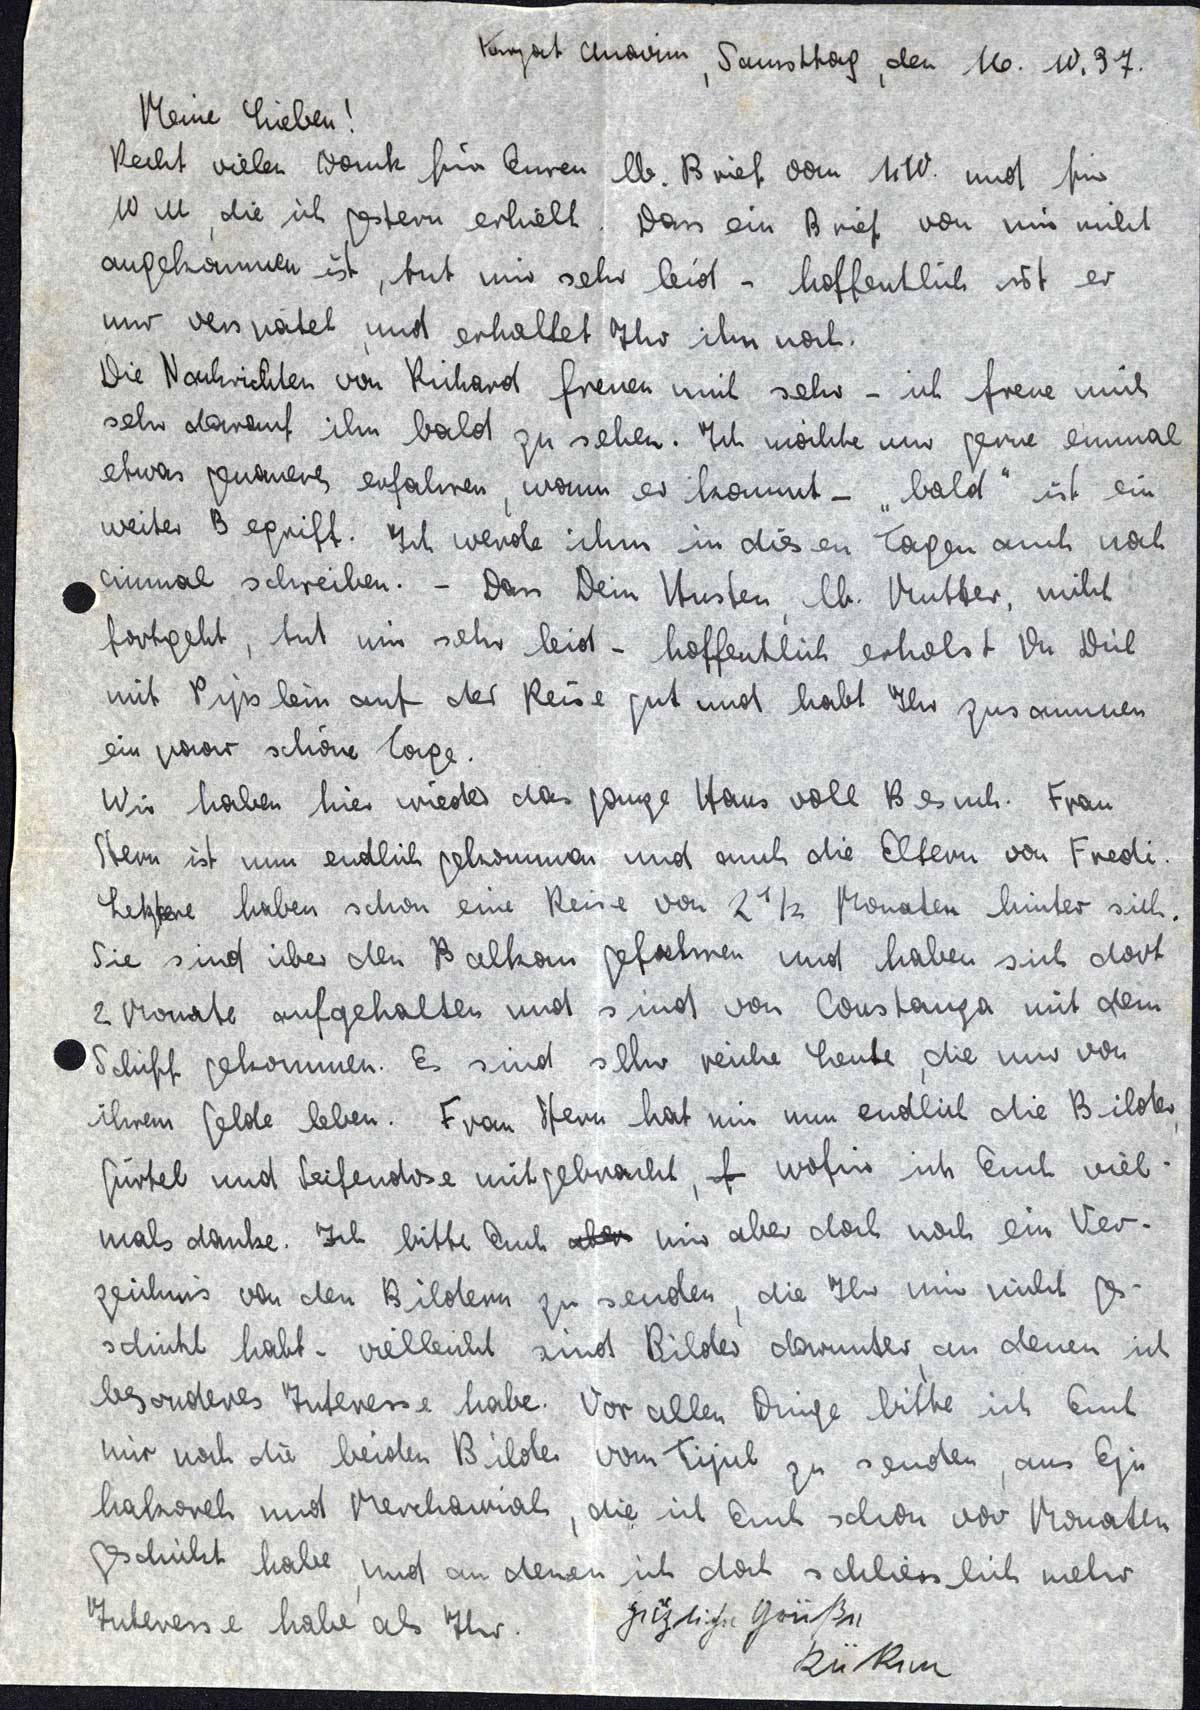 Kirjat Anavim, Samsttag, den 16. 10. 37.
Meine Lieben!
Recht vielen Dank für Euren lb. Brief vom 1.10. und für
10 M, die ich gestern erhielt. Dass ein Brief von mir nicht
angekommen ist, tut mir sehr leid - hoffentlich ist er
nur verspätet und erhaltet Ihr ihn noch.
Die Nachrichten von Richard freuen mich sehr - ich freue mich
sehr darauf ihn bald zu sehen. Ich möchte nur gerne einmal
etwas genaueres erfahren, wann er kommt - „bald" ist ein
weiter Begriff. Ich werde ihm in diesen Tagen auch noch
einmal schreiben. - Dass Dein Husten, lb. Mutter, nicht
fortgeht, tut mir sehr leid - hoffentlich erholst Du Dich
mit Pipslein auf der Reise gut und habt Ihr zusammen
ein paar schöne Tage.
Wir haben hier wieder das ganze Haus voll Besuch. Frau
Stern ist nun endlich gekommen und auch die Eltern von Fredi.
Letztere haben schon eine Reise von 2 1/2 Monaten hinter sich.
Sie sind über den Balkan gefahren und haben sich dort
2 Monate aufgehalten und sind von Constanza mit dem
Schiff gekommen. Es sind sehr reiche Leute, die nur von
ihrem Gelde leben. Frau Stern hat mir nun endlich die Bilder,
Gürtel und Seifendose mitgebracht, wofür ich Euch viel-
mals danke. Ich bitte Euch aber mir aber doch noch ein Ver-
zeichnis von den Bildern zu senden, die Ihr mir nicht ge-
schickt habt - vielleicht sind Bilder darunter, an denen ich
besonderes Interesse habe. Vor allen Dinge bitte ich Euch
mir noch die beiden Bilder vom Tijul zu senden, aus Ejn
hakoreh und Merchawiah, die ich Euch schon vor Monaten
geschickt habe, und an denen ich doch schliesslich mehr
Interesse habe als Ihr. Herzliche Grüße